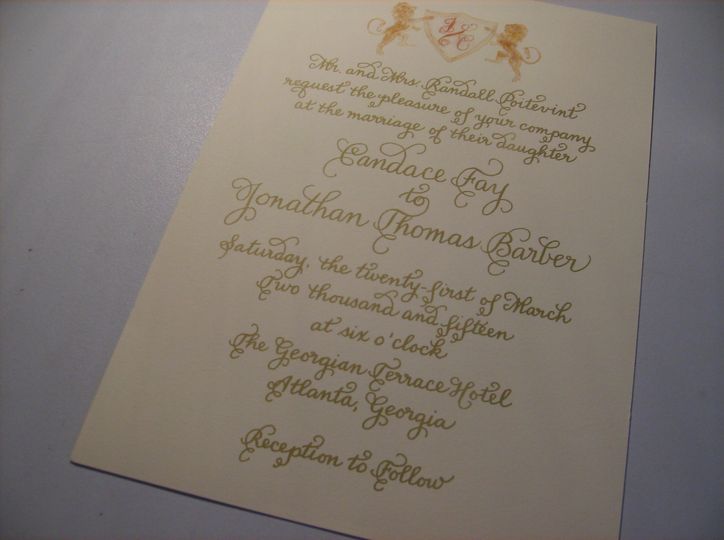 J C
Mr. and Mrs. Randall Poitevint
request the pleasure of your company
at the marriage of their daughter
Candace Fay
to
Jonathan Thomas Barber
Saturday, the twenty-first of March
Two thousand and fifteen
at six o'clock
The Georgian Terrace Hotel
Atlanta, Georgia
Reception to Follow